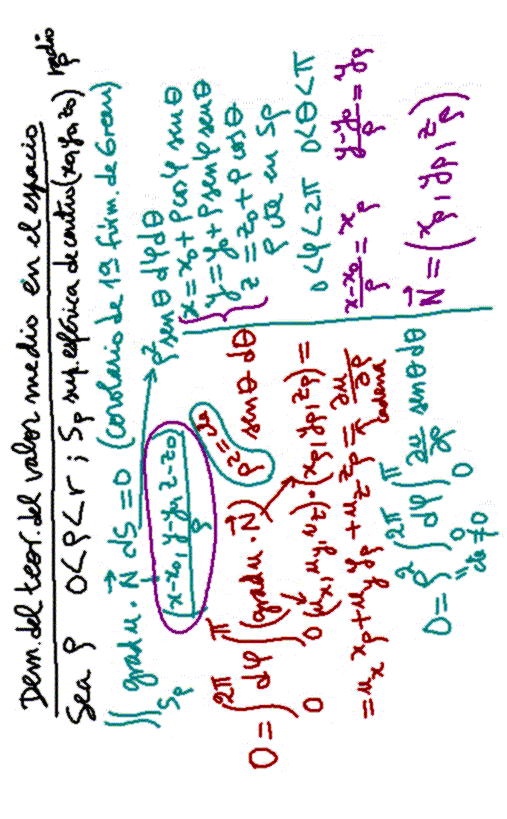 Dem. del teor. del valor medio en el espacio
Sea ρ 0<ρ<r ; Sρ sup. esférica de centro (x₀,y₀,z₀) radio ρ
∬_{Sρ} grad u · N⃗ dS = 0 (corolario de 1ª fórm. de Green)
(x-x₀, y-y₀, z-z₀)/ρ
ρ² sen θ dφ dθ
x = x₀ + ρ cos φ sen θ
y = y₀ + ρ sen φ sen θ
z = z₀ + ρ cos θ
ρ cte en Sρ
0<φ<2π 0<θ<π
(x-x₀)/ρ = xρ (y-y₀)/ρ = yρ
N⃗ = (xρ, yρ, zρ)
0 = ∫₀^{2π} dφ ∫₀^{π} (grad u · N⃗) ρ²=cte sen θ dθ
(uₓ, u_y, u_z) · (xρ, yρ, zρ) =
= uₓ xρ + u_y yρ + u_z zρ = ∂u/∂ρ
cadena
0 = ρ² ∫₀^{2π} dφ ∫₀^{π} ∂u/∂ρ sen θ dθ
cte ≠ 0